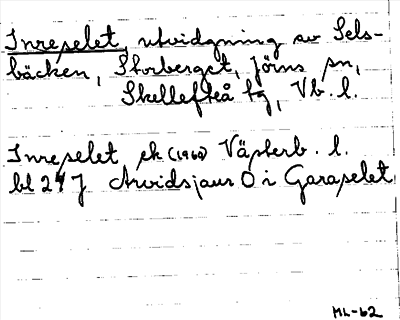 Inreselet, utvidgning av Sels-
bäcken, Storberget, Jörns sn,
Skellefteå tg, Vb. l.
Inreselet ek (1962) Västerb. l.
bl 247 Arvidsjaur O i Garaselet
ML-62